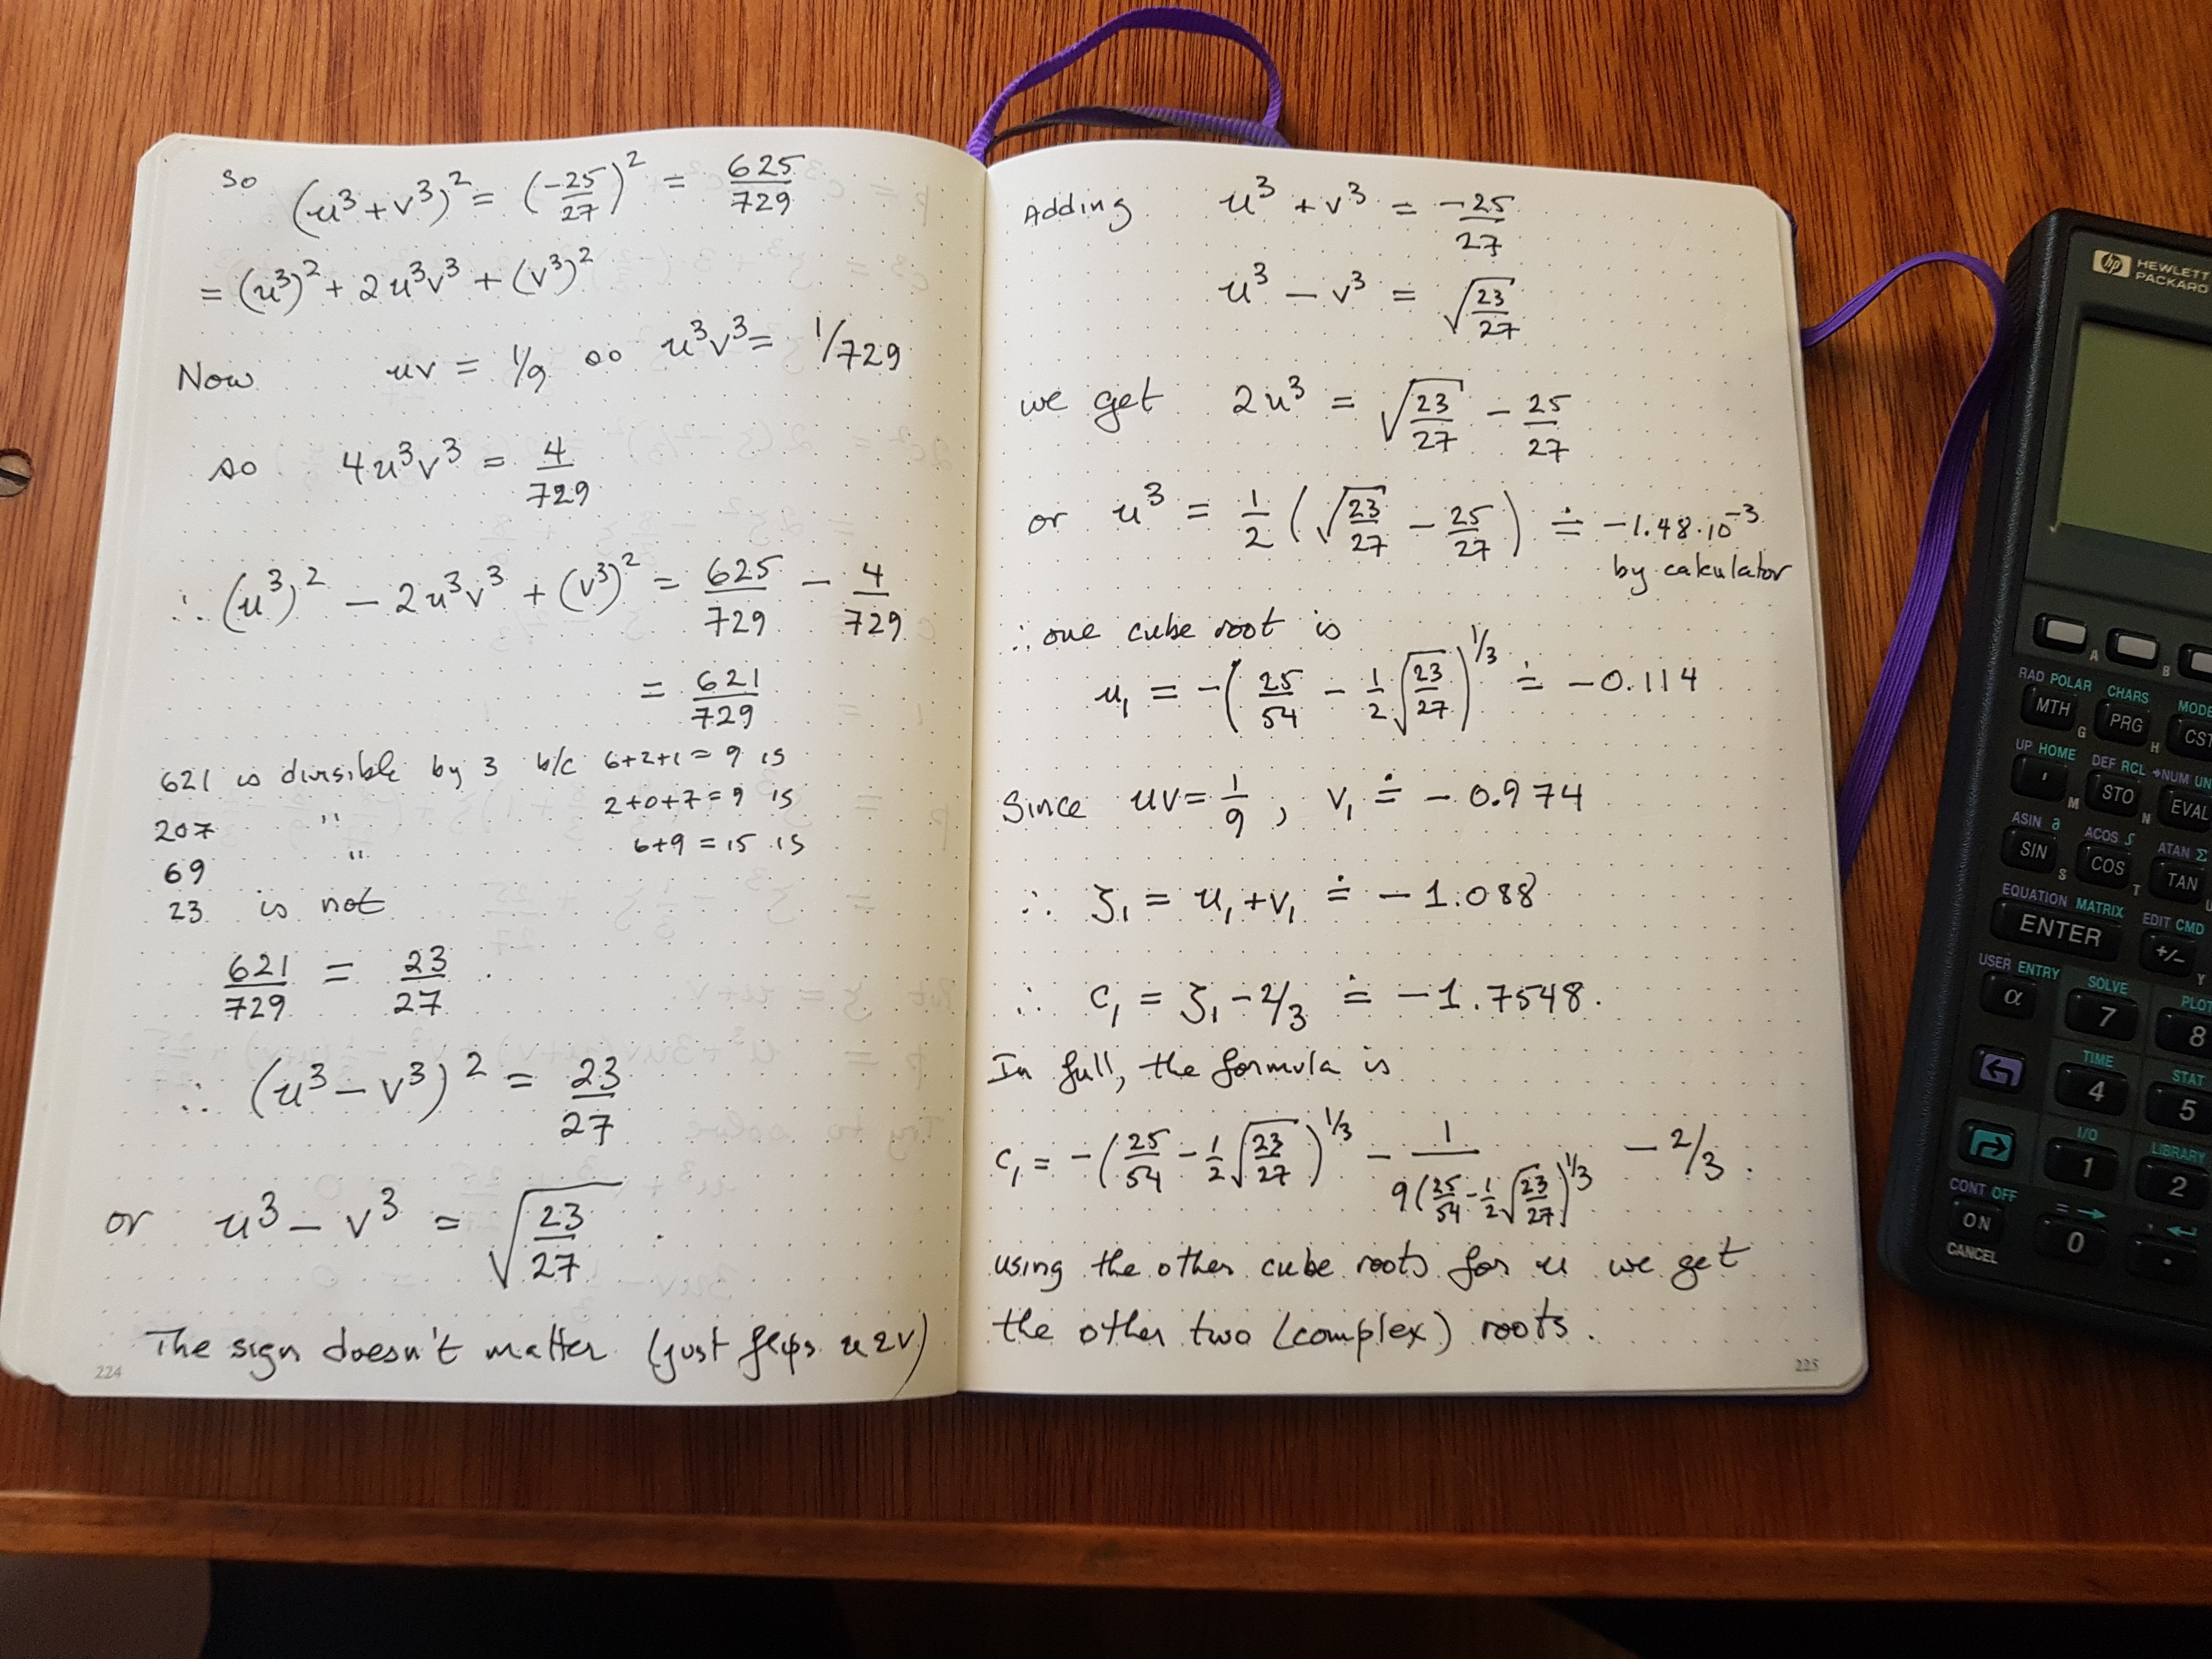 so (u³+v³)² = (-25/27)² = 625/729
= (u³)² + 2u³v³ + (v³)²
Now uv = 1/9 so u³v³ = 1/729
so 4u³v³ = 4/729
∴ (u³)² - 2u³v³ + (v³)² = 625/729 - 4/729
= 621/729
621 is divisible by 3 b/c 6+2+1 = 9 is
207 " 2+0+7 = 9 is
69 " 6+9 = 15 is
23 is not
621/729 = 23/27 .
∴ (u³ - v³)² = 23/27
or u³ - v³ = √(23/27) .
The sign doesn't matter (just flips u & v)
224
Adding u³ + v³ = -25/27
u³ - v³ = √(23/27)
we get 2u³ = √(23/27) - 25/27
or u³ = 1/2 (√(23/27) - 25/27) ≐ -1.48·10⁻³
by calculator
∴ one cube root is
u₁ = -(25/54 - 1/2 √(23/27))^1/3 ≐ -0.114
Since uv = 1/9 , v₁ ≐ -0.974
∴ ζ₁ = u₁ + v₁ ≐ -1.088
∴ c₁ = ζ₁ - 2/3 ≐ -1.7548.
In full, the formula is
c₁ = -(25/54 - 1/2 √(23/27))^1/3 - 1/(9(25/54 - 1/2 √(23/27))^1/3) - 2/3 .
using the other cube roots for u we get
the other two (complex) roots.
225
hp HEWLETT
PACKARD
A B
RAD POLAR CHARS MODE
MTH PRG CST
G H
UP HOME DEF RCL →NUM UN
' STO EVAL
M N
ASIN ∂ ACOS ∫ ATAN Σ
SIN COS TAN
S T U
EQUATION MATRIX EDIT CMD
ENTER +/-
Y
USER ENTRY SOLVE PLOT
α 7 8
TIME STAT
4 5
I/O LIBRARY
1 2
CONT OFF = → , ↵
ON 0 .
CANCEL